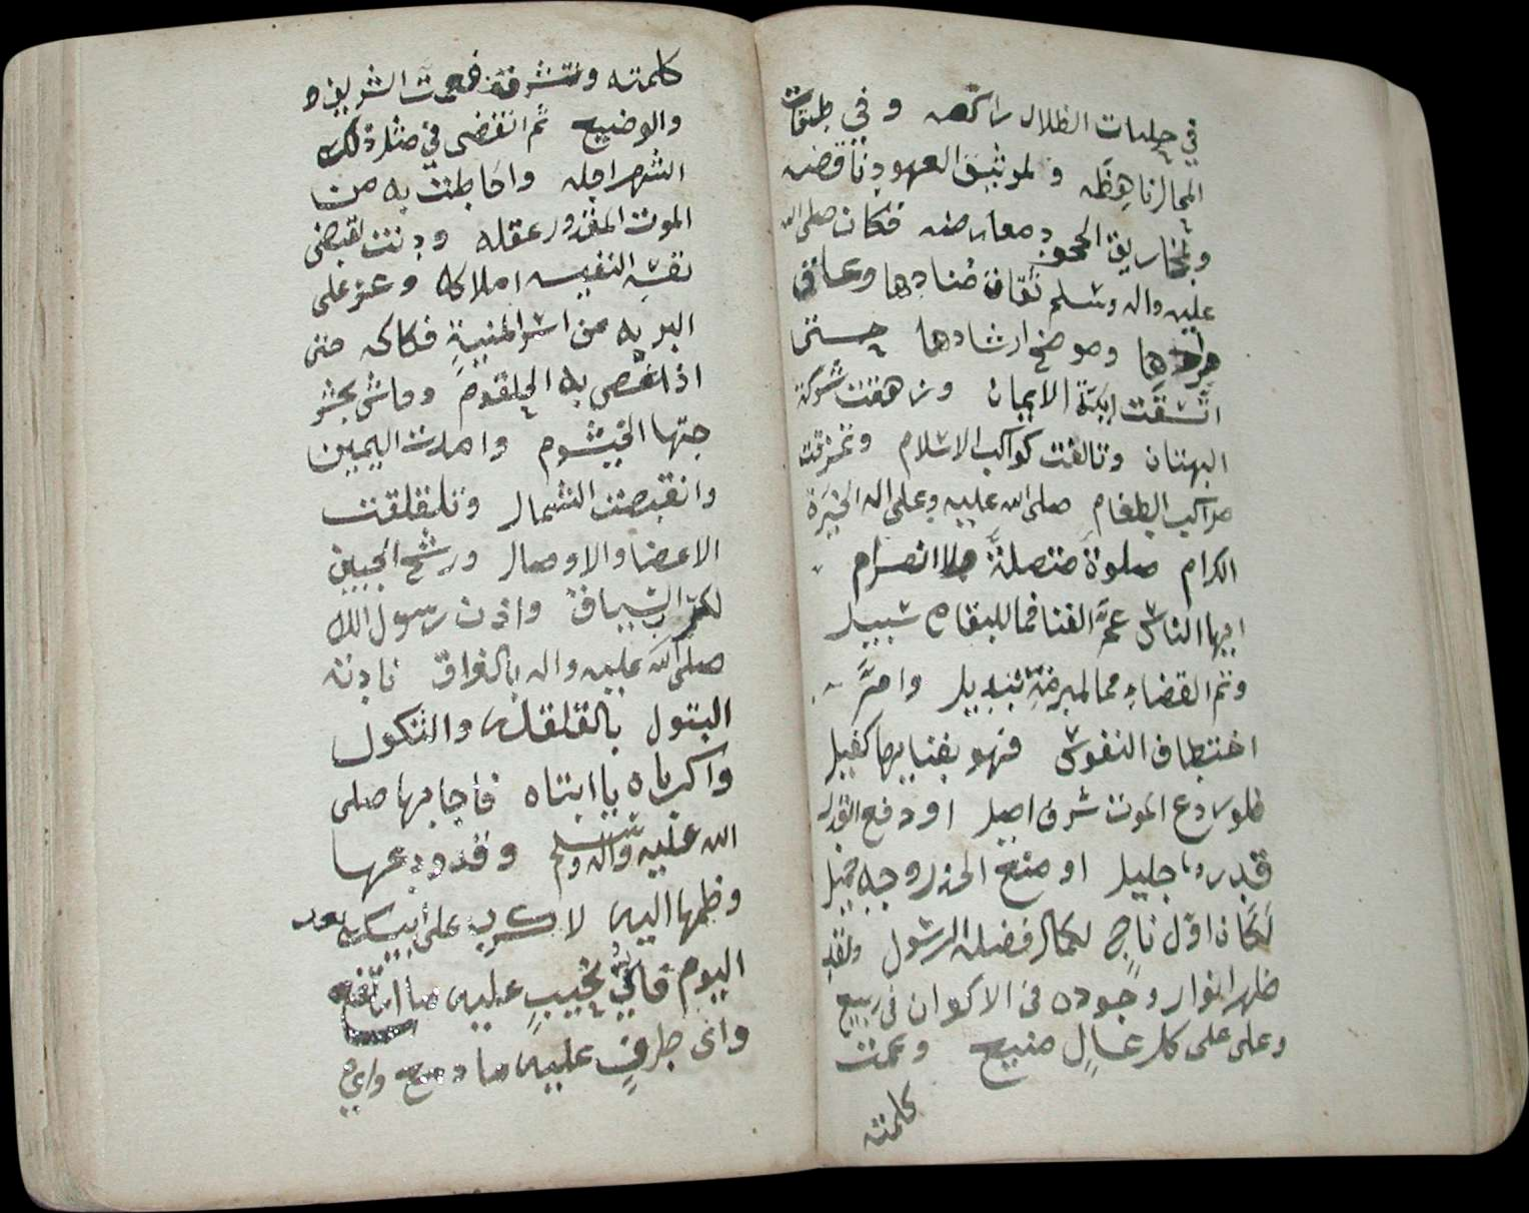 في حلبات الظلال راكضه وفي طبقات
المحال ناهضه ولمونيق العهود ناقضه
ولمخاريق الجحود معارضه فكان صلى الله
عليه واله وسلم ثقاف منادها وعائق
وموضح ارشادها حتى
اتسقت ايكة الايمان وزهقت شوكة
البهتان وتالفت كواكب الاسلام وتمزقت
مواكب الطغام صلى الله عليه وعلى اله الخيرة
الكرام صلوة متصلة بلا انصرام
ايها الناس عم الفنا فما للبقاء سبيل
وتم القضاء فما لمبرمه تبديل وامر
اختطاف النفوس فهو بفنايها كفيل
فلو ردع الموت شرف اصيل او دفع القدر
قدر جليل او منع الحذر وجه جميل
لكان اول ناج لكمال فضله الرسول ولقد
ظهر انوار وجوده في الاكوان في ربيع
وعلى على كل عال منيع وعمت
كلمته
كلمته وتشرفة الشريف و
والوضيع ثم انقضى في مثل ذلك
الشهر اجله واحاطت به من
الموت المقدور عقله ودنت لقبض
نفسه النفيسه املاكه وعز على
البريه من اسر المنية فكاكه حتى
اذا غص به الحلقوم وجاش بحشر
جتها الخيشوم وامدت اليمين
وانقبضت الشمال وتقلقلت
الاعضا والاوصال ورشح الجبين
لكرب السياق واذن رسول الله
صلى الله عليه واله بالفراق نادته
البتول بالقلقله والثكول
واكرباه يا ابتاه فاجابها صلى
الله عليه واله وسلم وقد ودعها
وظمها اليه لا كرب على ابيك بعد
اليوم فاي نحيب عليه ما
واي طرف عليه ما دمع واي